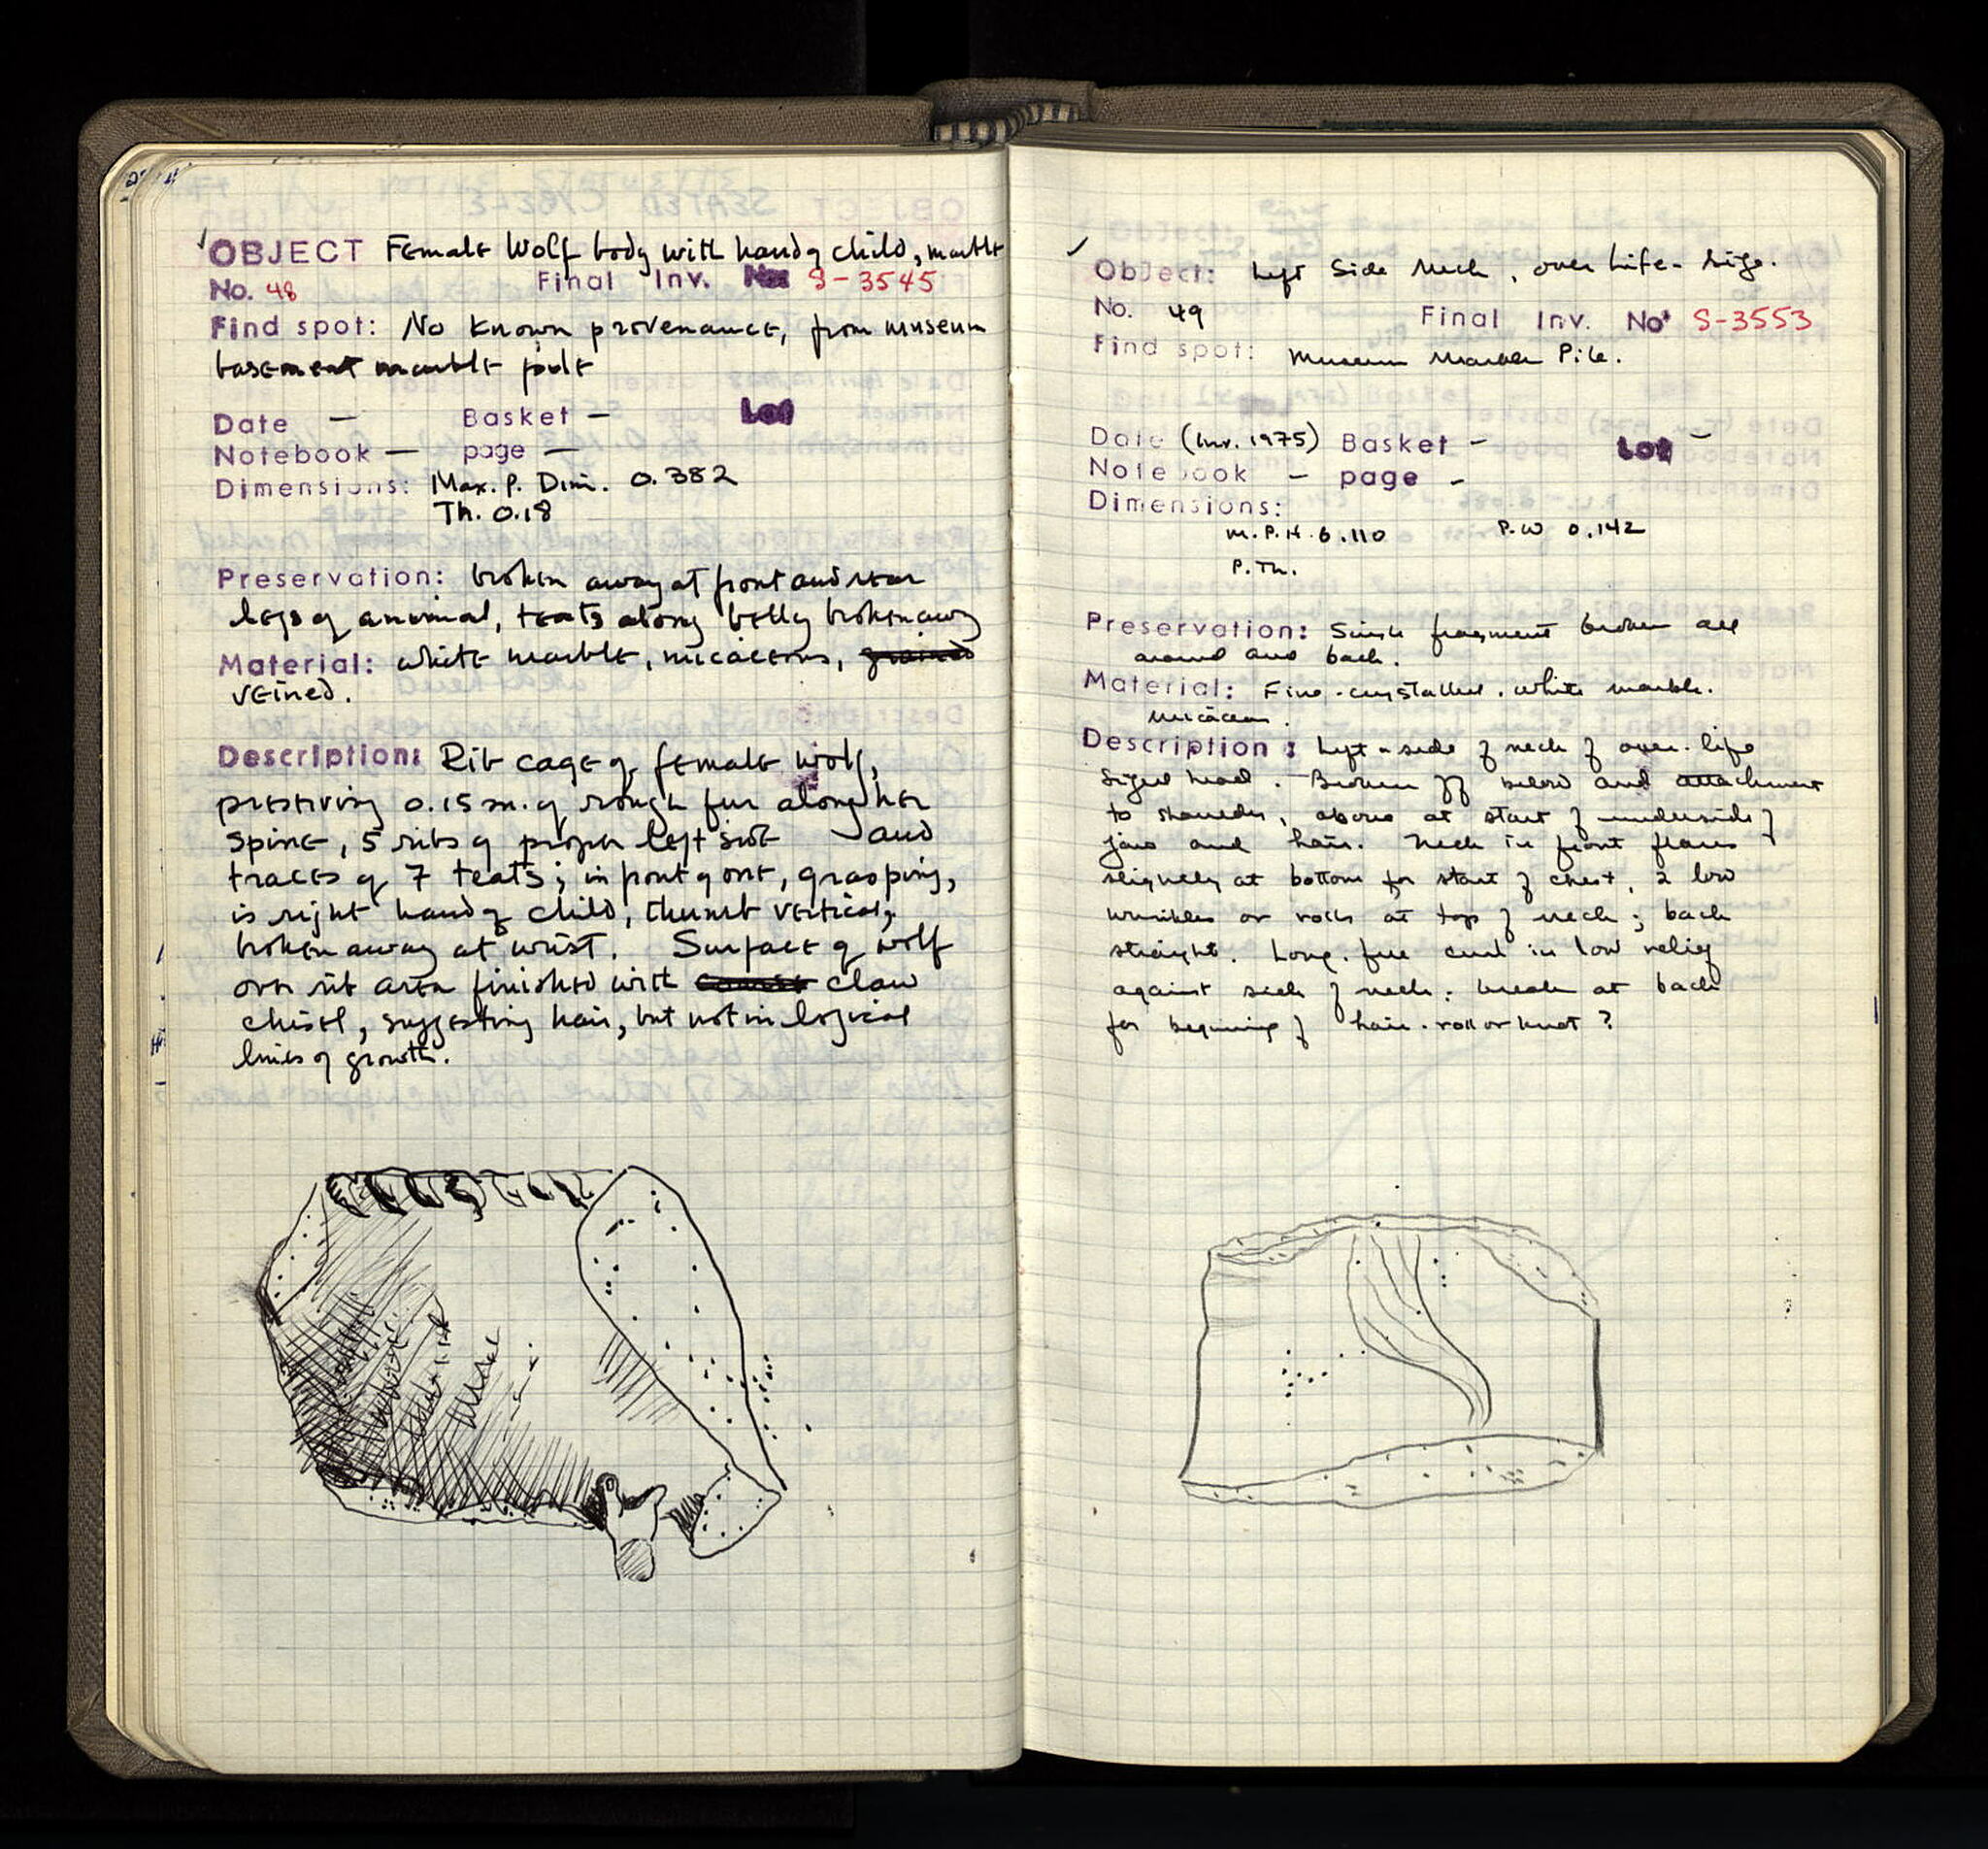 OBJECT Female Wolf body with hand of child, marble
No. 48 Final Inv. No. S-3545
Find spot: No known provenance, from museum
basement marble pile
Date — Basket — Lot
Notebook — page —
Dimensions: Max. P. Dim. 0.382
Th. 0.18
Preservation: broken away at front and rear
legs of animal, teats along belly broken away
Material: white marble, micaceous, grained
veined.
Description: Rib cage of female wolf,
preserving 0.15 m. of rough fur along her
spine, 5 ribs of proper left side and
traces of 7 teats; in front of one, grasping,
is right hand of child, thumb vertical,
broken away at wrist. Surface of wolf
over rib area finished with coarse claw
chisel, suggesting hair, but not in logical
lines of growth.
Object: Left Side Neck, over Life-Size.
No. 49 Final Inv. No. S-3553
Find spot: Museum Marble Pile.
Date (Inv. 1975) Basket - Lot -
Notebook - page -
Dimensions:
M.P.H. 0.110 P.W 0.142
P.Th.
Preservation: Single fragment broken all
around and back.
Material: Fine-crystalled, white marble.
micaceous.
Description: Left-side of neck of over-life
sized head. Broken off below and attachment
to shoulder, above at start of underside of
jaw and hair. Neck in front flares
slightly at bottom for start of chest, 2 low
wrinkles or rolls at top of neck; back
straight. Long, free curl in low relief
against side of neck; break at back
for beginning of hair-roll or knot?